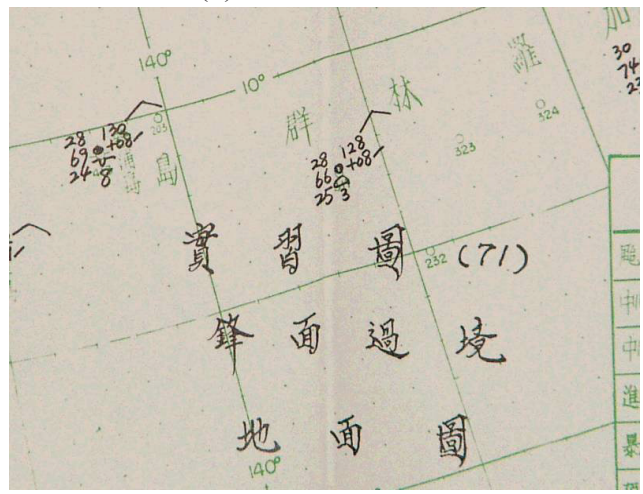 140°
10°
加
羅
林
群
島
浦島
203
324
323
232
30
74
28 130
69 +08
24 8
28 128
66 +08
25 3
實習圖(71)
鋒面過境
地面圖
140°
颱
中
中
進
暴